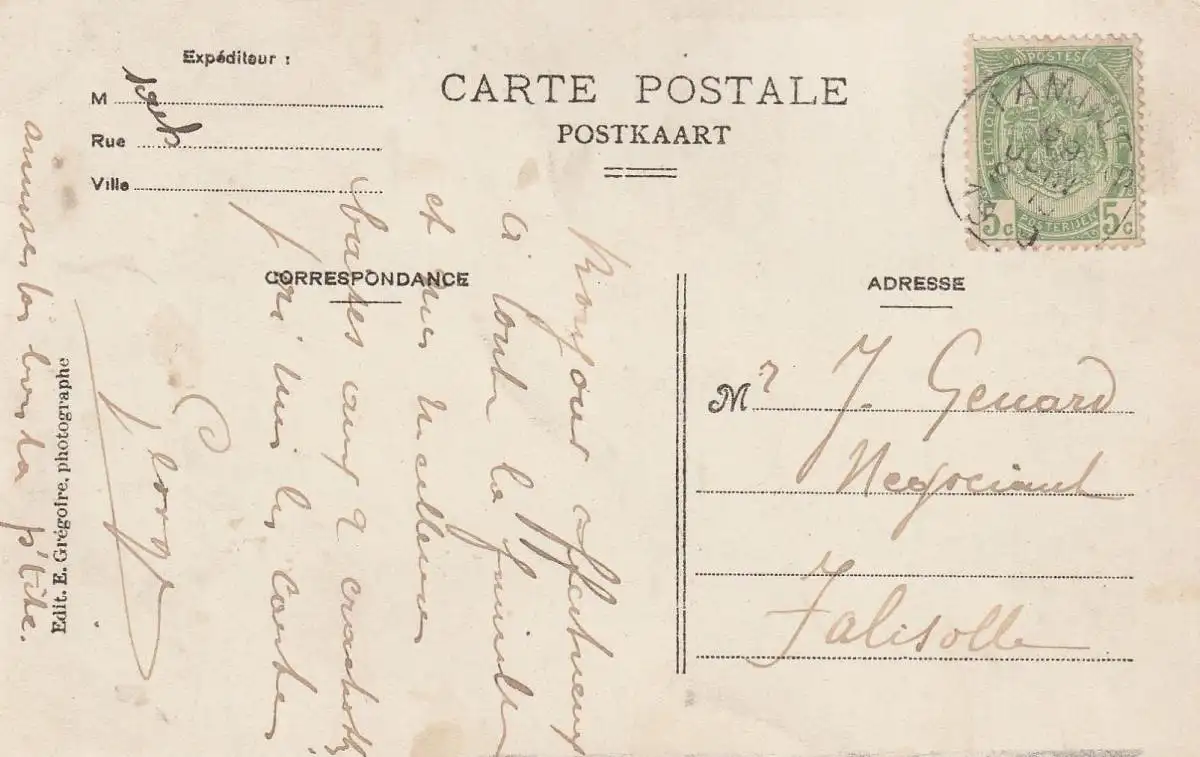 Expéditeur :
M
Rue
Ville
CARTE POSTALE
POSTKAART
POSTES
BELGIQUE
BELGIË
5c
5c
POSTERIJEN
TAMINES
CORRESPONDANCE
ADRESSE
Bonjour affectueux
à toute la famille
et mes meilleurs
baises aux 2
pri mi les cartes
George
amuses toi bien ta p'tite.
Edit. E. Grégoire, photographe
Mr J. Genard
Negociant
Falisolle